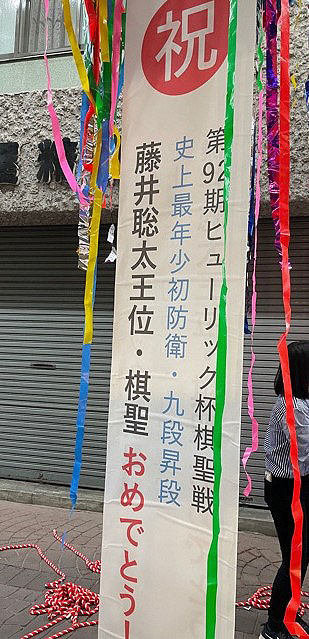 祝
第92期ヒューリック杯棋聖戦
史上最年少初防衛・九段昇段
藤井聡太王位・棋聖 おめでとう！